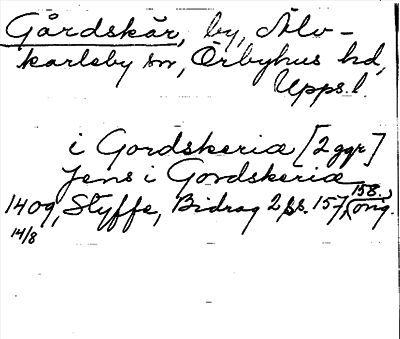 Gårdskär, by, Älv-
karleby sn, Örbyhus hd,
Upps. l.
i Gordskeriæ [2 ggr]
Jens i Gordskeriæ
1409, Styffe, Bidrag 2 ss. 157, 158, orig.
14/8